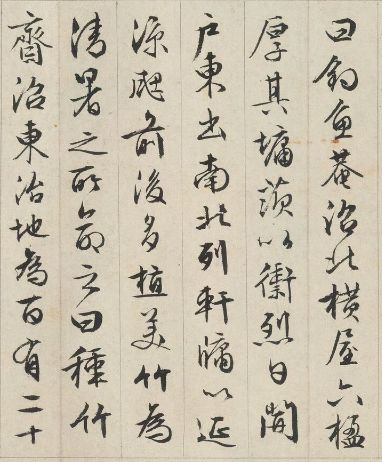 曰釣魚菴沼北橫屋六楹
厚其墉茨以衛烈日開
戶東出南北列軒牖以延
涼颸前後多植美竹為
清暑之所命之曰種竹
齋沼東治地為百有二十